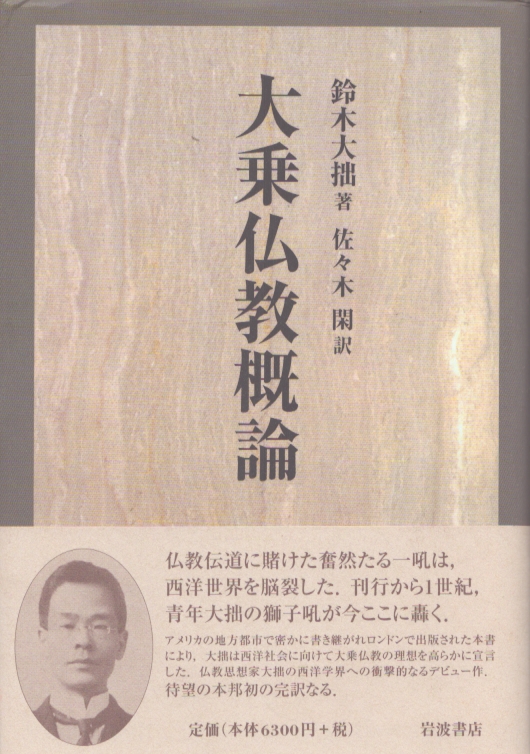 鈴木大拙著 佐々木 閑訳
大乗仏教概論
仏教伝道に賭けた奮然たる一吼は,
西洋世界を脳裂した. 刊行から1世紀,
青年大拙の獅子吼が今ここに轟く.
アメリカの地方都市で密かに書き継がれロンドンで出版された本書
により, 大拙は西洋社会に向けて大乗仏教の理想を高らかに宣言
した. 仏教思想家大拙の西洋学界への衝撃的なるデビュー作.
待望の本邦初の完訳なる.
定価(本体6300円+税)
岩波書店